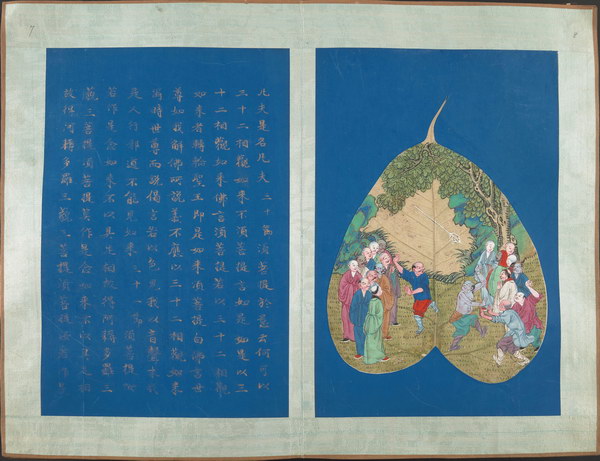 7
8
凡夫是名凡夫 二十篇 須菩提於意云何可以
三十二相觀如來不須菩提言如是如是以三
十二相觀如來佛言須菩提若以三十二相觀
如來者轉輪聖王即是如來須菩提白佛言世
尊如我解佛所說義不應以三十二相觀如來
爾時世尊而說偈言若以色見我以音聲求我
是人行邪道不能見如來 須菩提汝
若作是念如來不以具足相故得阿耨多羅三
藐三菩提須菩提莫作是念如來不以具足相
故得阿耨多羅三藐三菩提須菩提汝若作是